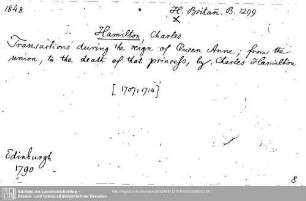 1848
H. Britan. B. 1299
x
Hamilton, Charles
Transactions during the reign of Queen Anne; from the
union, to the death of that princess, by Charles Hamilton
[1707-1714]
Edinburgh
1790
8
Sächsische Landesbibliothek -
Staats- und Universitätsbibliothek Dresden